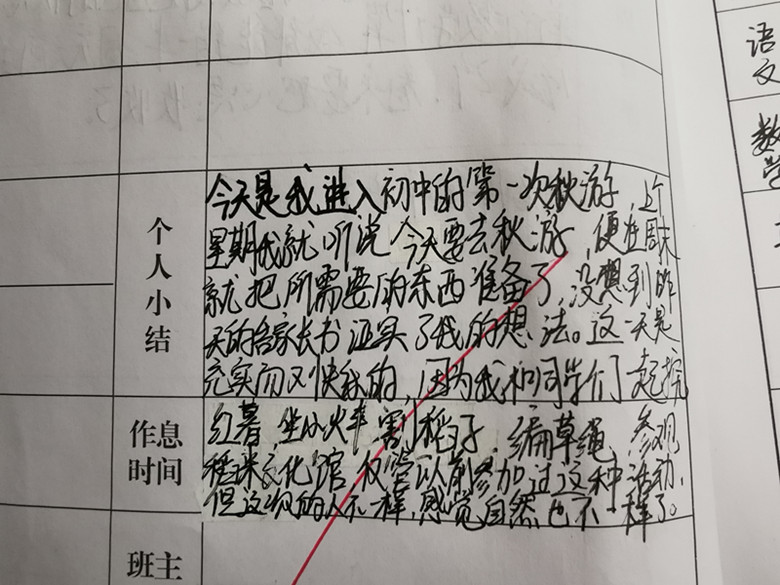 语文
数学
个人小结
今天是我进入初中的第一次秋游,上个
星期我就听说今天要去秋游,便在周末
就把所需要的东西准备了,没想到昨
天的告家长书证实了我的想法。这一天是
充实而又快乐的,因为我和同学们一起挖
作息时间
红薯,坐小火车,割稻子,编草绳,参观
珠文化馆,仅管以前参加过这种活动,
但这次的人不一样,感觉自然也不一样了。
班主